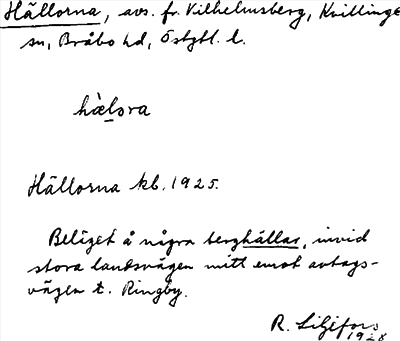 Hällorna, avs. fr. Vilhelmsberg, Kvillinge
sn, Bråbo hd, Östgtl. l.
hä̀lora
Hällorna kb. 1925.
Beläget å några berghällar, invid
stora landsvägen mitt emot avtags-
vägen t. Ringby.
R. Liljefors
1928